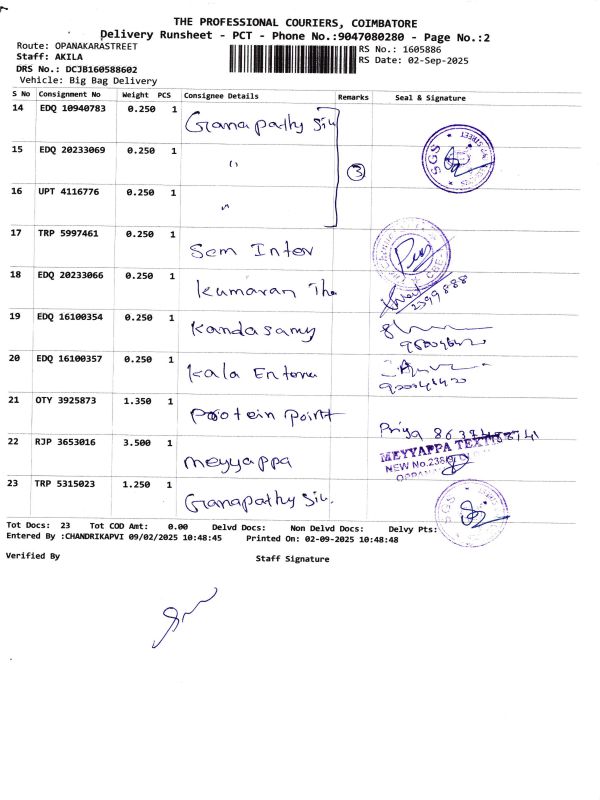 THE PROFESSIONAL COURIERS, COIMBATORE
Delivery Runsheet - PCT - Phone No.:9047080280 - Page No.:2
Route: OPANAKARASTREET
RS No.: 1605886
Staff: AKILA
RS Date: 02-Sep-2025
DRS No.: DCJB160588602
Vehicle: Big Bag Delivery
S No Consignment No Weight PCS Consignee Details Remarks Seal & Signature
14 EDQ 10940783 0.250 1 Ganapathy Silk
15 EDQ 20233069 0.250 1 " 3 SGS
16 UPT 4116776 0.250 1 "
17 TRP 5997461 0.250 1 Sem Inter
18 EDQ 20233066 0.250 1 Kumaran The 2399888
19 EDQ 16100354 0.250 1 Kandasamy
20 EDQ 16100357 0.250 1 Kala Enton
21 OTY 3925873 1.350 1 Protein Point Priya
22 RJP 3653016 3.500 1 meyyappa MEYYAPPA TEXTILES
NEW No.238
23 TRP 5315023 1.250 1 Ganapathy Sil. SGS
Tot Docs: 23 Tot COD Amt: 0.00 Delvd Docs: Non Delvd Docs: Delvy Pts:
Entered By :CHANDRIKAPVI 09/02/2025 10:48:45 Printed On: 02-09-2025 10:48:48
Verified By Staff Signature